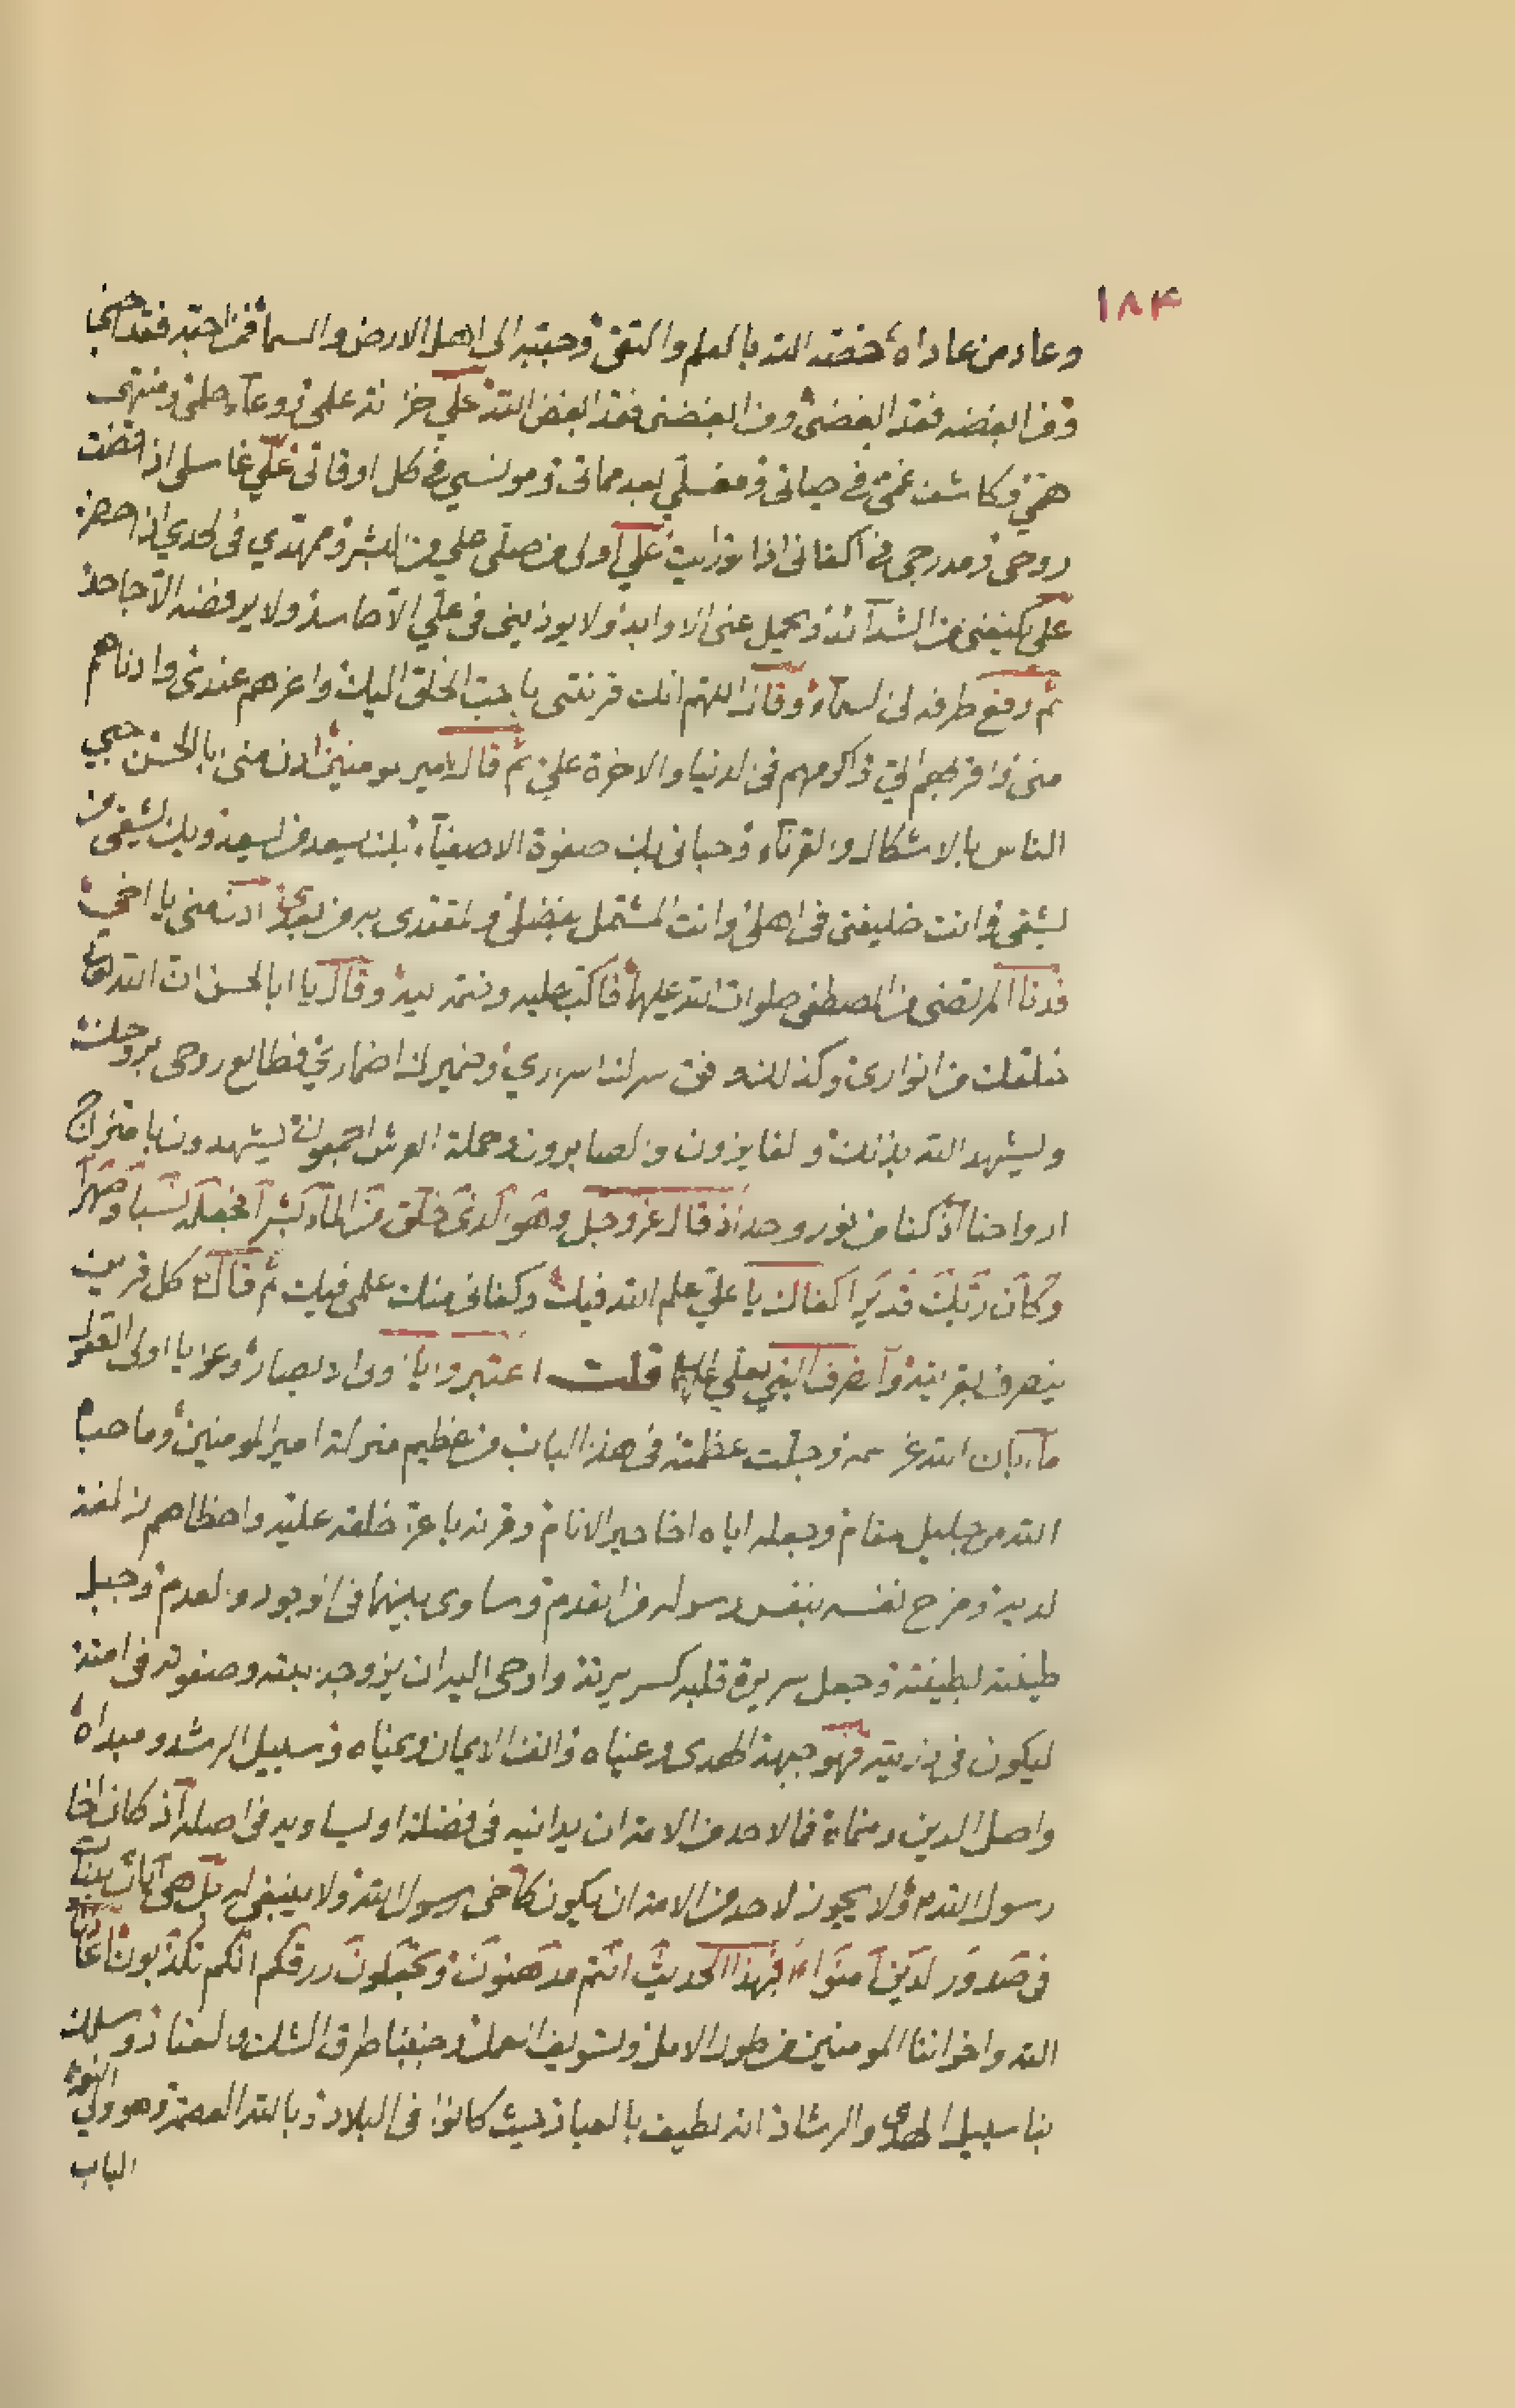 ١٨۴
وعاد من عاداه خصه الله بالعلم والتقى وحببه الى اهل الارض والسما فمن احبه فقد احبني
ومن ابغضه فقد ابغضني ومن ابغضني فقد ابغض الله علي خزانة علمي ووعاء حلمي ومنتهى
همي وكاشف غمي في حياتي ومغسلي بعد مماتي ومونسي في كل اوقاتي علي غاسلي اذا قبضت
روحي ومدرجي في اكفاني اذا تواريت علي اول من صلى علي من البشر وممهدي في لحدي اذا حضر
علي يكفيني من الشدائد ويحمل عني الاوابد ولا يوذيني في علي الا حاسد ولا يرفضه الا جاحد
ثم رفع طرفه الى السماء وقال اللهم انك قرنتني باحب الخلق اليك واعزهم عندي وادناهم
مني واقربهم الي واكرمهم في الدنيا والاخرة علي ثم قال لامير المومنين ادن مني يابا الحسن حبي
الناس بالاشكال والقرناء وحباني بك صفوة الاصفياء بك يسعد من سعد وبك يشقى من
يشقى وانت خليفتي في اهلي وانت المشتمل بفضلي والمقتدى به من بعدي ادن مني يا اخي
فدنا المرتضى من المصطفى صلوات الله عليهما فاكب عليه وضمه بيده وقال يا ابا الحسن ان الله تعالى
خلقك من انواري وكذلك وفق سرك اسراري وضميرك اضماري فطالع روحي بروحك
وليشهد الله بذلك والفايزون والصابرون وحملة العرش اجمعون يشهدون بامتزاج
ارواحنا اذ كنا من نور واحد اذ قال عز وجل وهو الذي خلق من الماء بشرا فجعله نسبا وصهرا
وكان ربك قديرا كفاك يا علي علم الله فيك وكفاني منك علمي فيك ثم قال كل قرين
ينصرف بقرينه وانصرف النبي بعلي عليهما السلام قلت اعتبروا يا اولي الابصار وعوا يا اولي العقول
ما ابان الله عز اسمه وجلت عظمته في هذا الباب من عظيم منزلة امير المومنين وما حباه
الله من جليل مقام وجعله اياه اخا خير الانام وقرنه باعز خلقه عليه واحظاهم زلفة
لديه ومزج نفسه بنفس رسوله من القدم وساوى بينهما في الوجود والعدم وجبل
طينته بطينته وجعل سريرة قلبه كسريرته واوحى اليه ان يزوجه ببنته وصفوته في امته
ليكون في ذريته فهو جبهة الهدى وعيناه والف الايمان ويمناه وسبيل الرشد ومبداه
واصل الدين ومنماه فما لاحد من الامة ان يدانيه في فضله او يساويه في اصله اذ كان اخا
رسول الله ولا يجوز لاحد من الامة ان يكون كاخي رسول الله ولا ينبغي له بل هي ايات بينات
في صدور الذين آمنوا افبهذا الحديث انتم مدهنون وتجعلون رزقكم انكم تكذبون اعاذنا
الله واخواننا المومنين من طول الامل وتسويف العمل وجنبنا طرق الشك والعناد وسلك
بنا سبيل الهدى والرشاد انه لطيف بالعباد حيث كانوا في البلاد وبالله العصمة وهو ولي
الباب